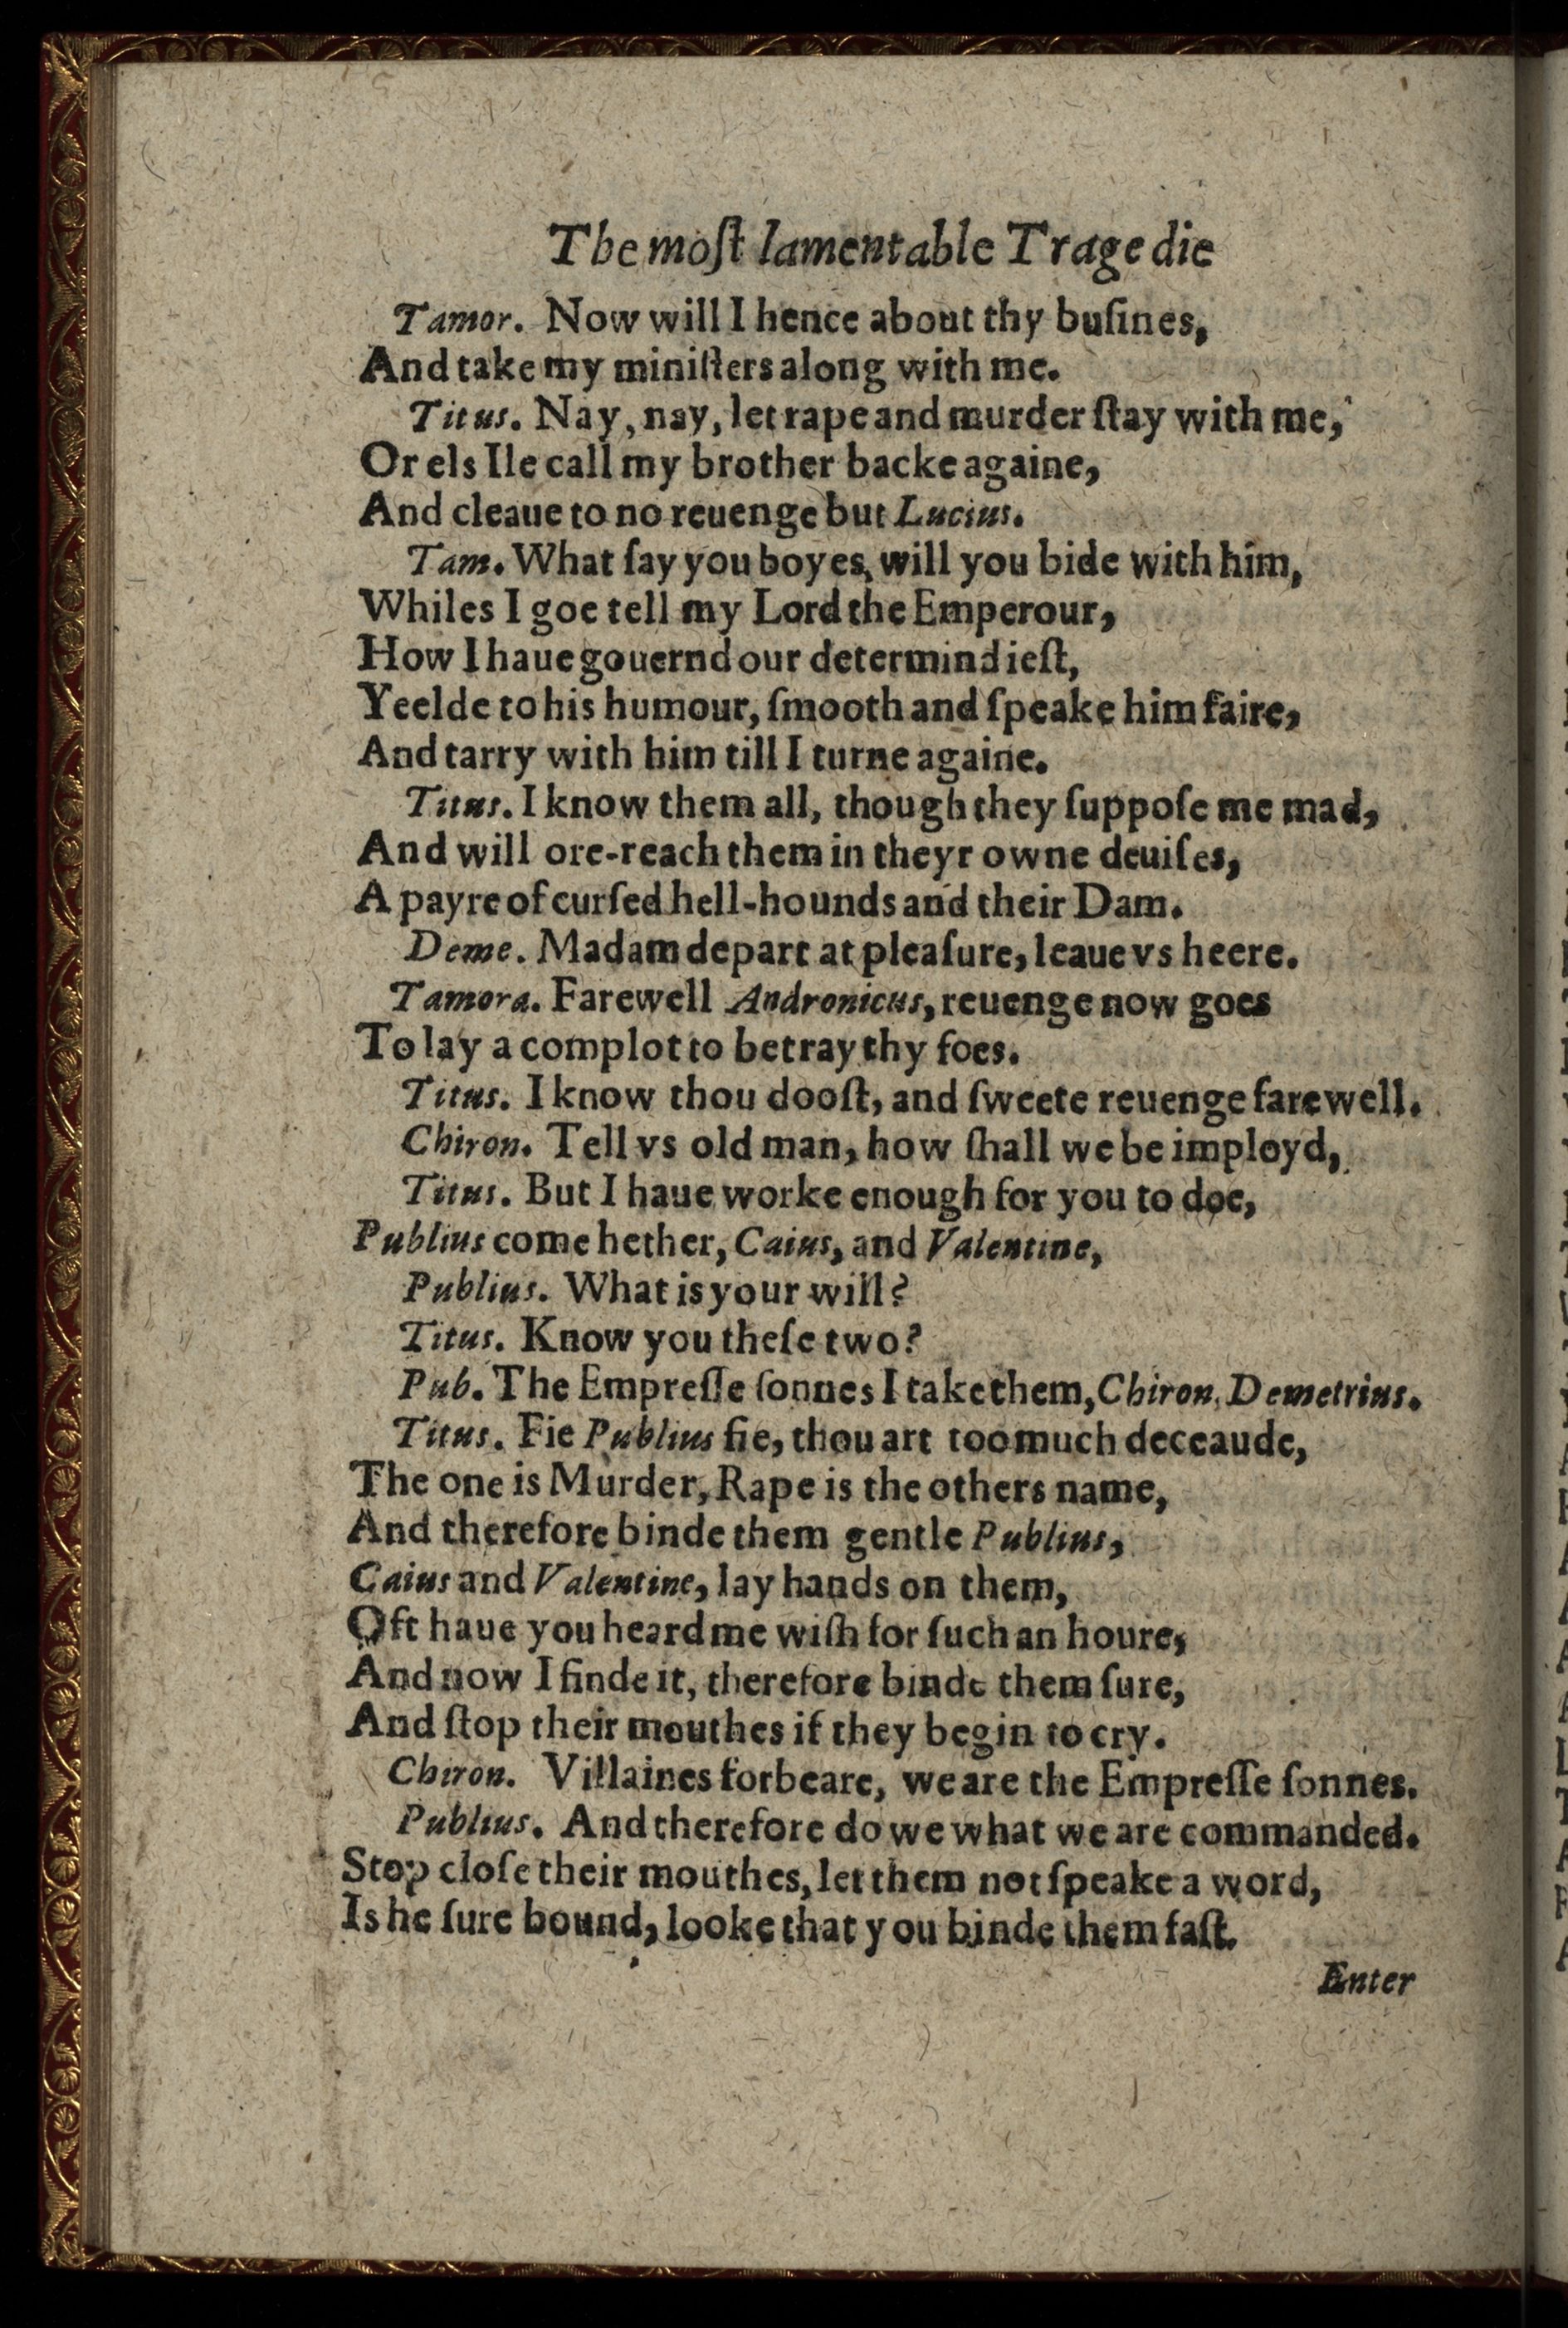 The moſt lamentable Tragedie
Tamor. Now will I hence about thy buſines,
And take my miniſters along with me.
Titus. Nay, nay, let rape and murder ſtay with me,
Or els Ile call my brother backe againe,
And cleaue to no reuenge but Lucius.
Tam. What ſay you boyes, will you bide with him,
Whiles I goe tell my Lord the Emperour,
How I haue gouernd our determind ieſt,
Yeelde to his humour, ſmooth and ſpeake him faire,
And tarry with him till I turne againe.
Titus. I know them all, though they ſuppoſe me mad,
And will ore-reach them in theyr owne deuiſes,
A payre of curſed hell-hounds and their Dam.
Deme. Madam depart at pleaſure, leaue vs heere.
Tamora. Farewell Andronicus, reuenge now goes
To lay a complot to betray thy foes.
Titus. I know thou dooſt, and ſweete reuenge farewell.
Chiron. Tell vs old man, how ſhall we be imployd,
Titus. But I haue worke enough for you to doe,
Publius come hether, Caius, and Valentine,
Publius. What is your will?
Titus. Know you theſe two?
Pub. The Empreſſe ſonnes I take them, Chiron, Demetrius.
Titus. Fie Publius fie, thou art too much deceaude,
The one is Murder, Rape is the others name,
And therefore binde them gentle Publius,
Caius and Valentine, lay hands on them,
Oft haue you heard me wiſh for ſuch an houre,
And now I finde it, therefore binde them ſure,
And ſtop their mouthes if they begin to cry.
Chiron. Villaines forbeare, we are the Empreſſe ſonnes.
Publius. And therefore do we what we are commanded.
Stop cloſe their mouthes, let them not ſpeake a word,
Is he ſure bound, looke that you binde them faſt.
Enter